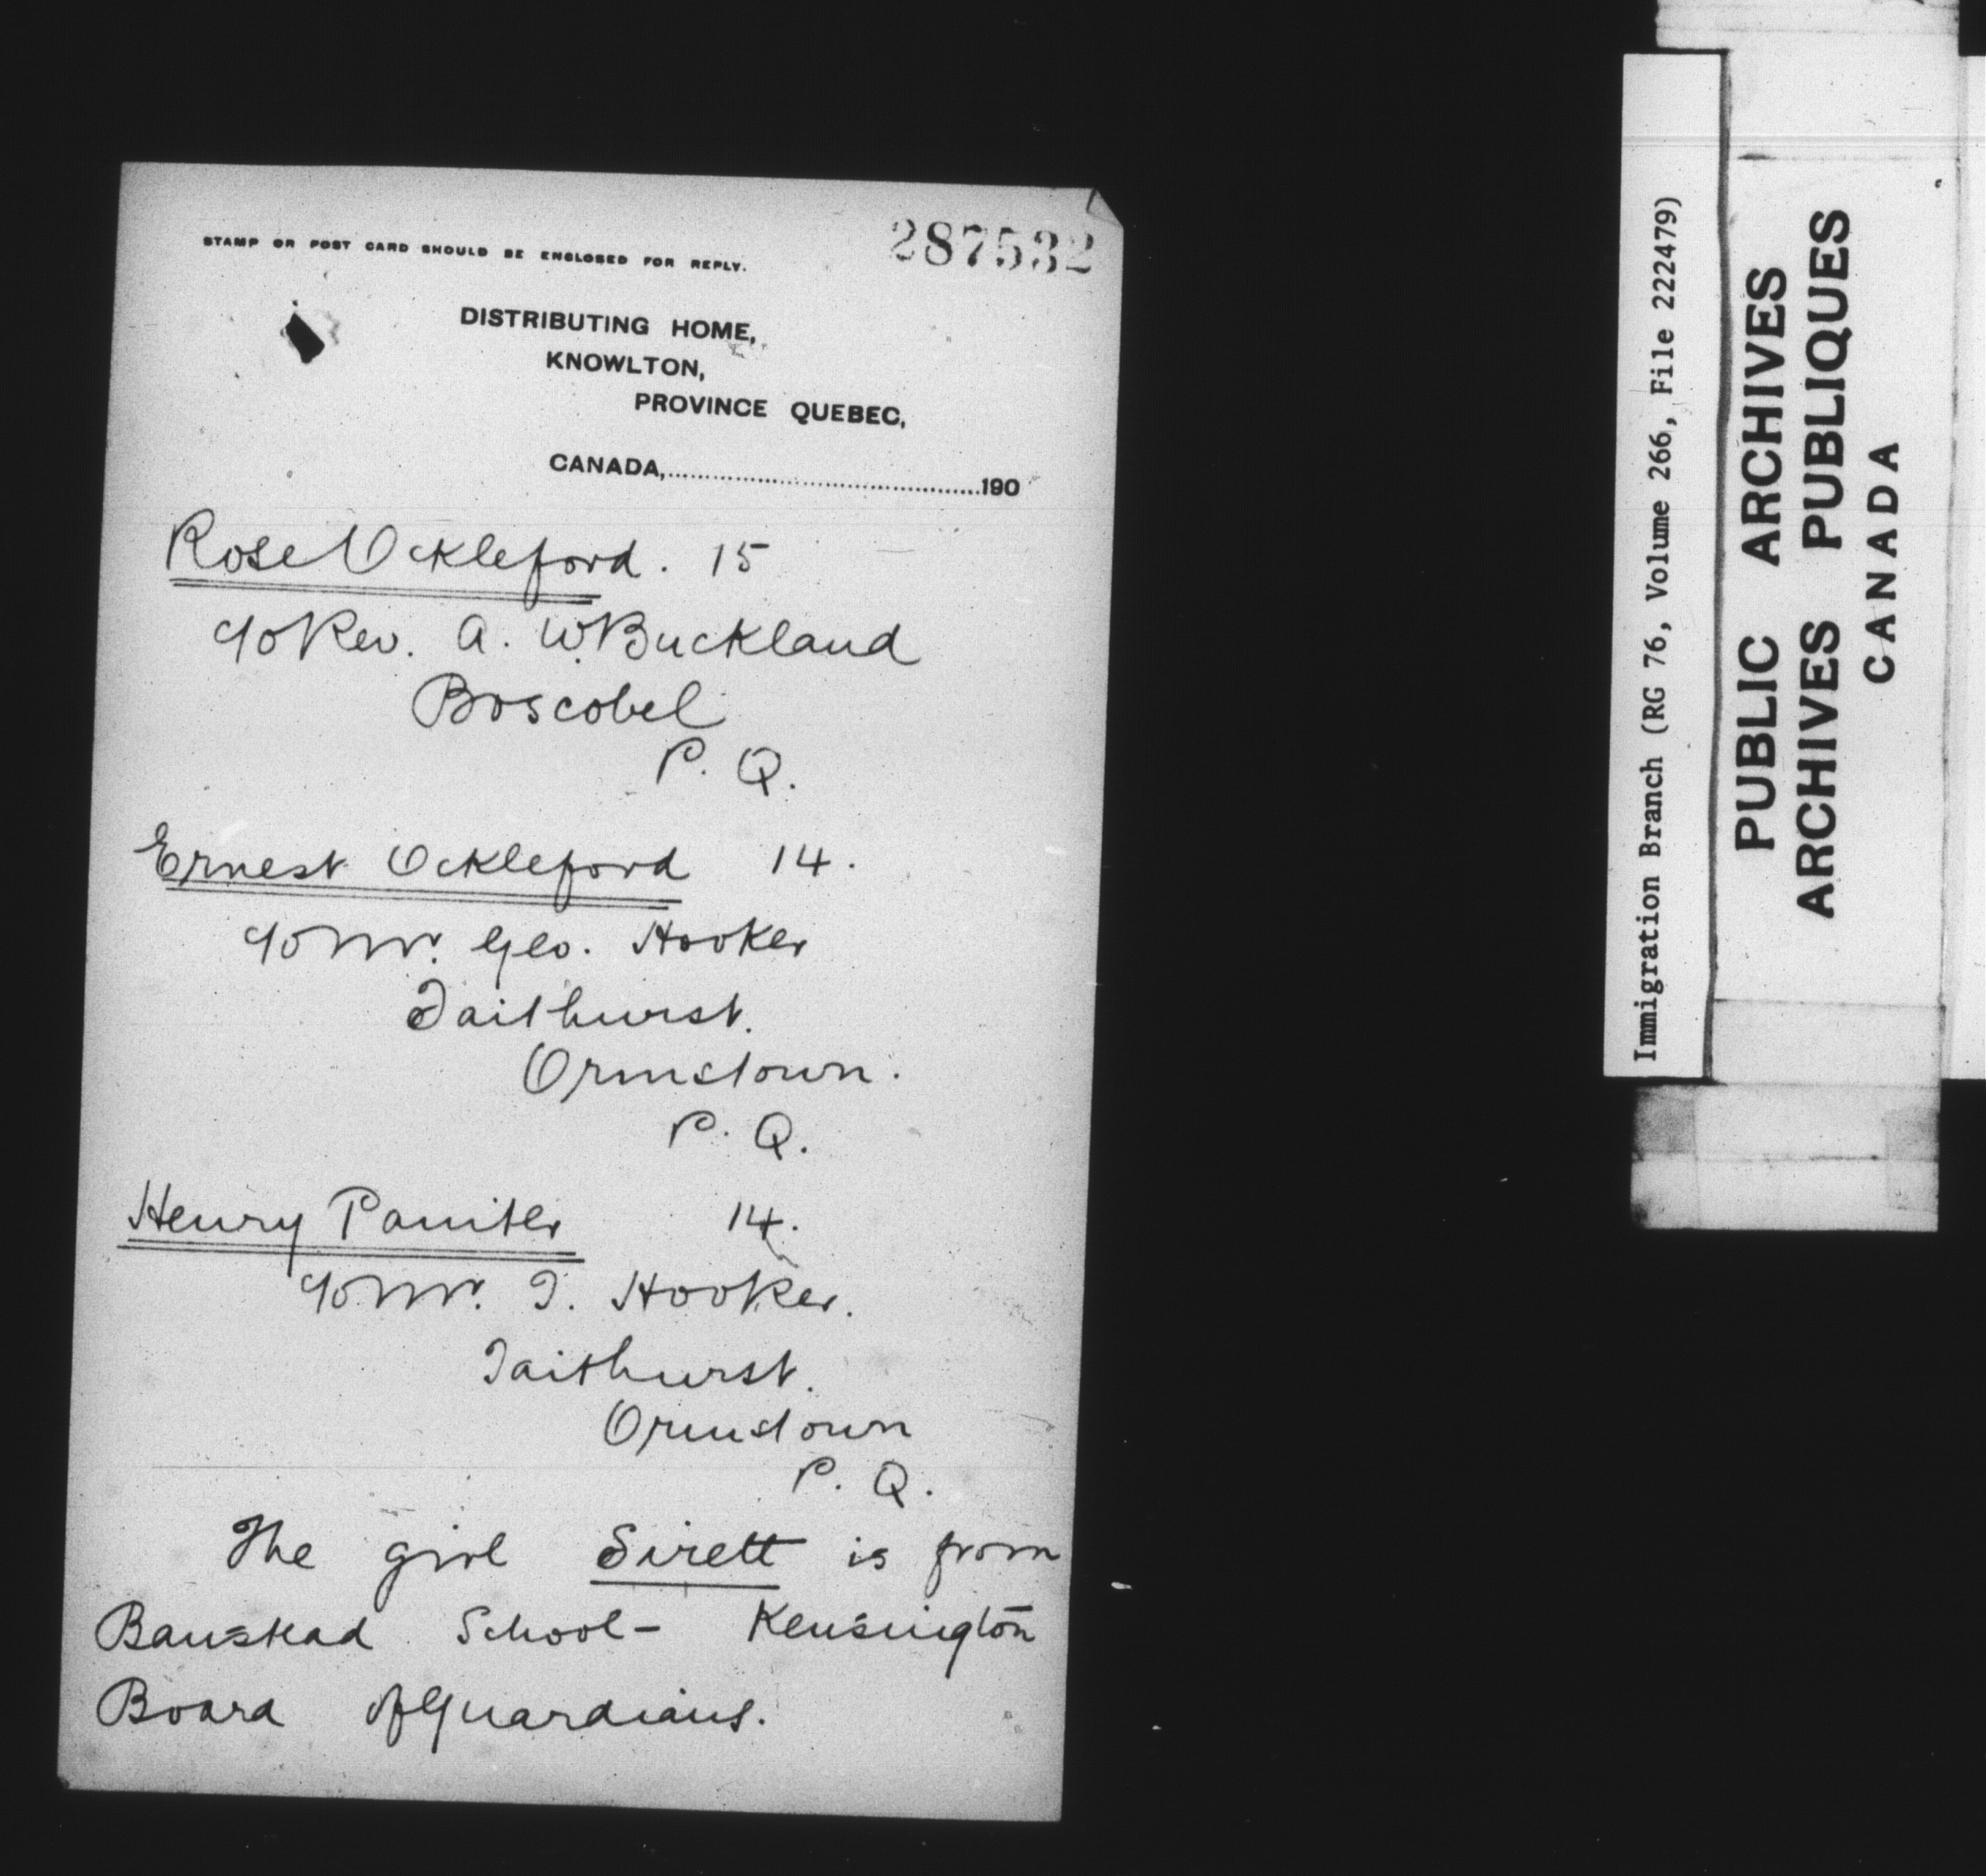 STAMP OR POST CARD SHOULD BE ENCLOSED FOR REPLY.
287532
DISTRIBUTING HOME,
KNOWLTON,
PROVINCE QUEBEC,
CANADA,..............................190
Rose Ockleford. 15
c/o Rev. A. W. Buckland
Boscobel
P. Q.
Ernest Ockleford 14.
c/o Mr. Geo. Hooker
Taithurst.
Ormstown.
P. Q.
Henry Painter 14.
c/o Mr. T. Hooker.
Taithurst.
Ormstown
P. Q.
The girl Sirett is from
Banstead School - Kensington
Board of Guardians.
Immigration Branch (RG 76, Volume 266, File 222479)
PUBLIC ARCHIVES
ARCHIVES PUBLIQUES
CANADA